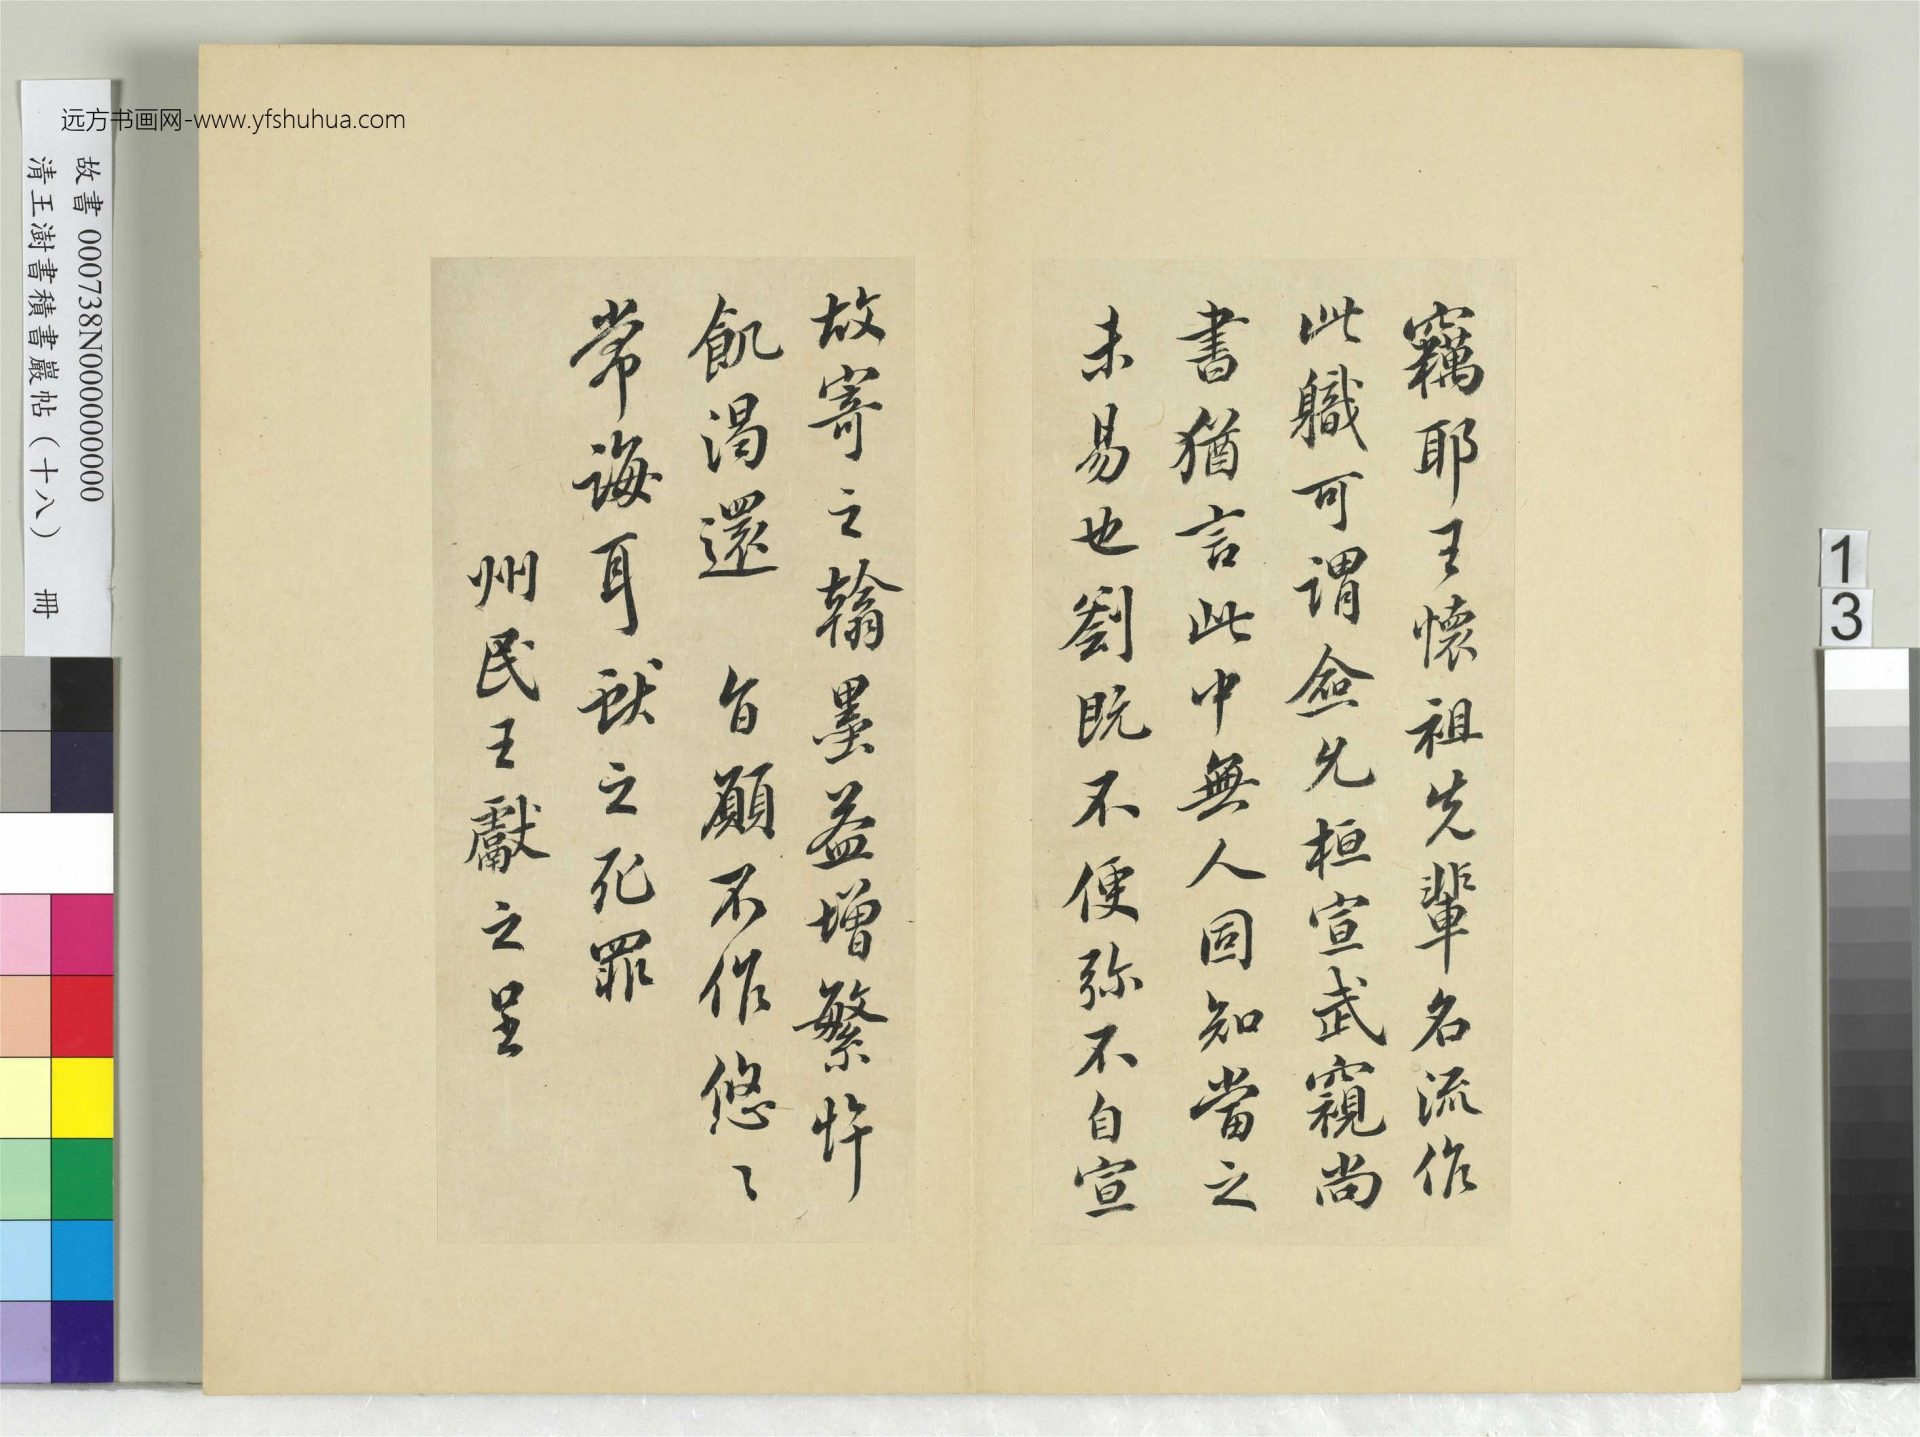 远方书画网-www.yfshuhua.com
故書 000738N000000000
清王澍書積書巖帖（十八） 冊
1
3
竊耶王懷祖先輩名流作
此職可謂僉允桓宣武窺尚
書猶言此中無人固知當之
未易也劉既不便弥不自宣
故寄之翰墨益增繁忤
飢渴還 旨願不作悠〻
常誨耳獻之死罪
州民王獻之呈